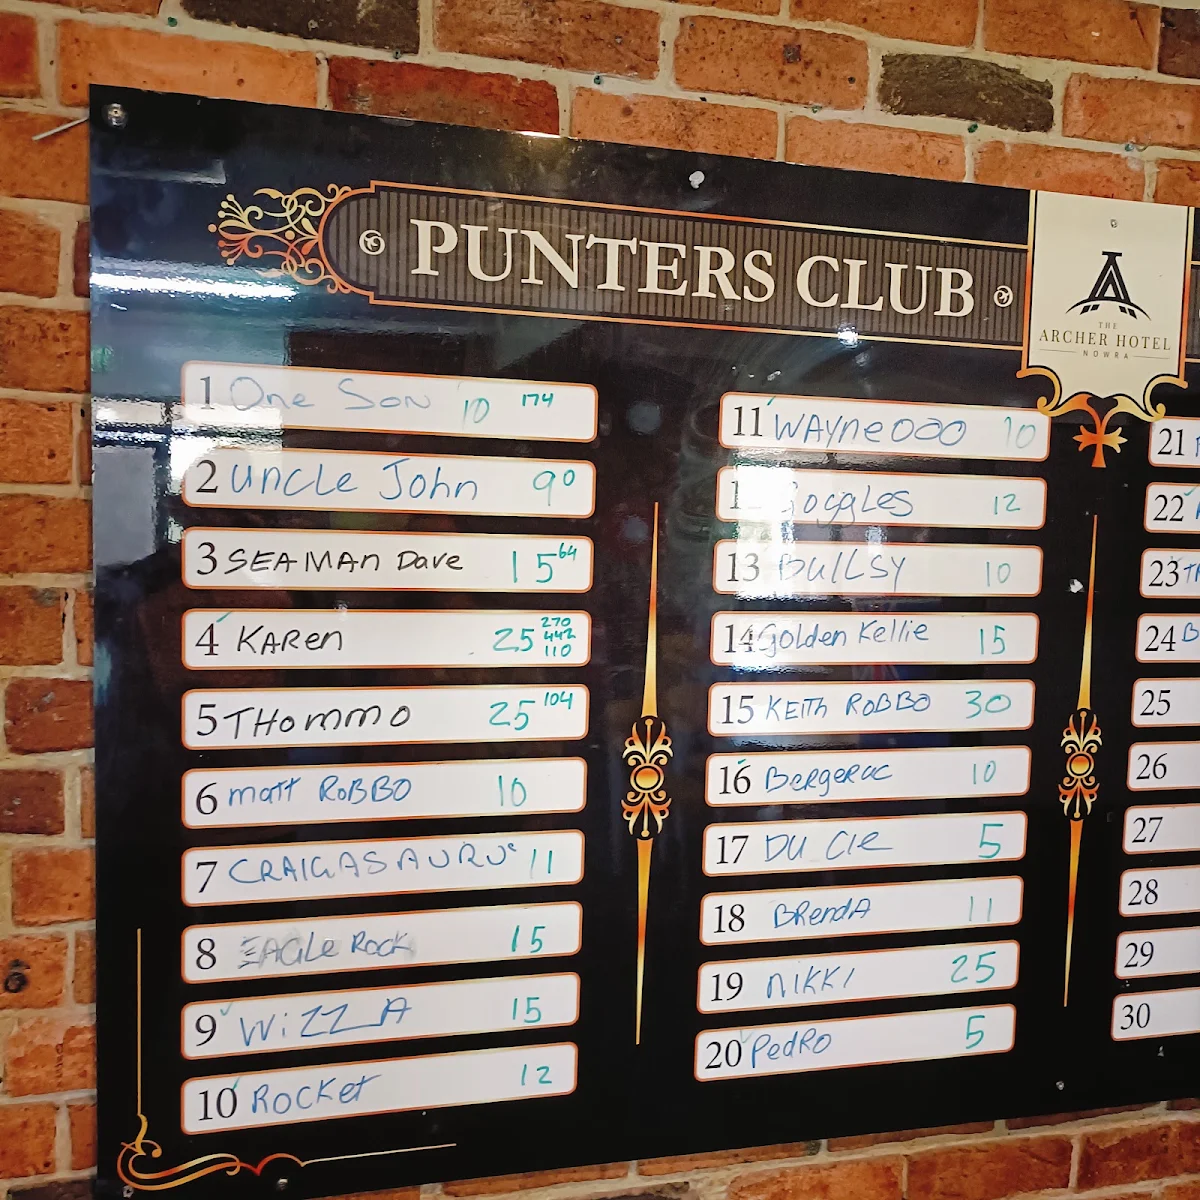 PUNTERS CLUB
THE
ARCHER HOTEL
NOWRA
1 One Son 10 174
2 Uncle John 90
3 SEAMAn Dave 15 64
4 KARen 25 270 442 110
5 THommo 25 104
6 matt RoBBO 10
7 CRAIGASAURUS 11
8 EAGLe Rock 15
9 WiZZA 15
10 ROCKet 12
11 WAYneooo 10
Goggles 12
13 BULLSY 10
14 Golden Kellie 15
15 KEITh RoBBO 30
16 Bergerac 10
17 DU CIE 5
18 BRendA 11
19 NIKKI 25
20 PedRo 5
21
22
23 T
24 B
25
26
27
28
29
30